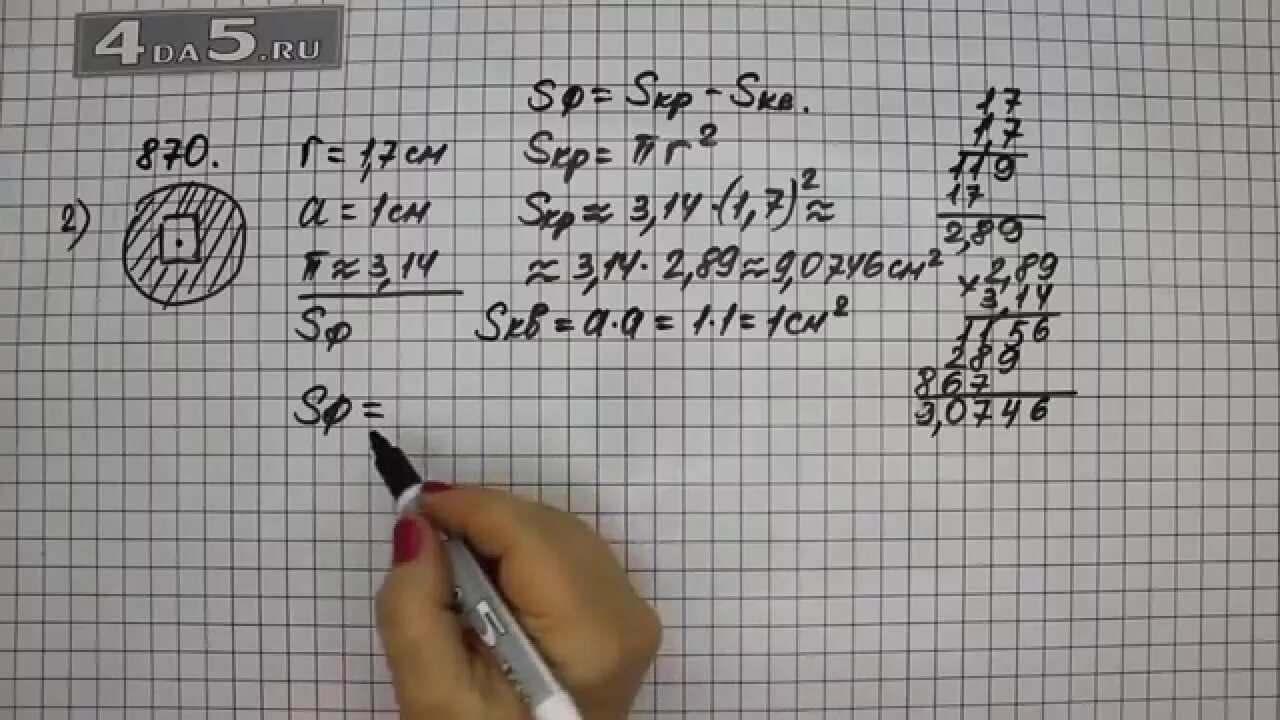 4DA5.RU
870.
2)
r = 1,7 см
a = 1 см
π ≈ 3,14
Sф
Sф = Sкр - Sкв.
Sкр = πr²
Sкр ≈ 3,14 · (1,7)² ≈
≈ 3,14 · 2,89 ≈ 9,0746 см²
Sкв = a · a = 1 · 1 = 1 см²
Sф =
1,7
1,7
119
17
2,89
× 2,89
3,14
1156
289
867
9,0746